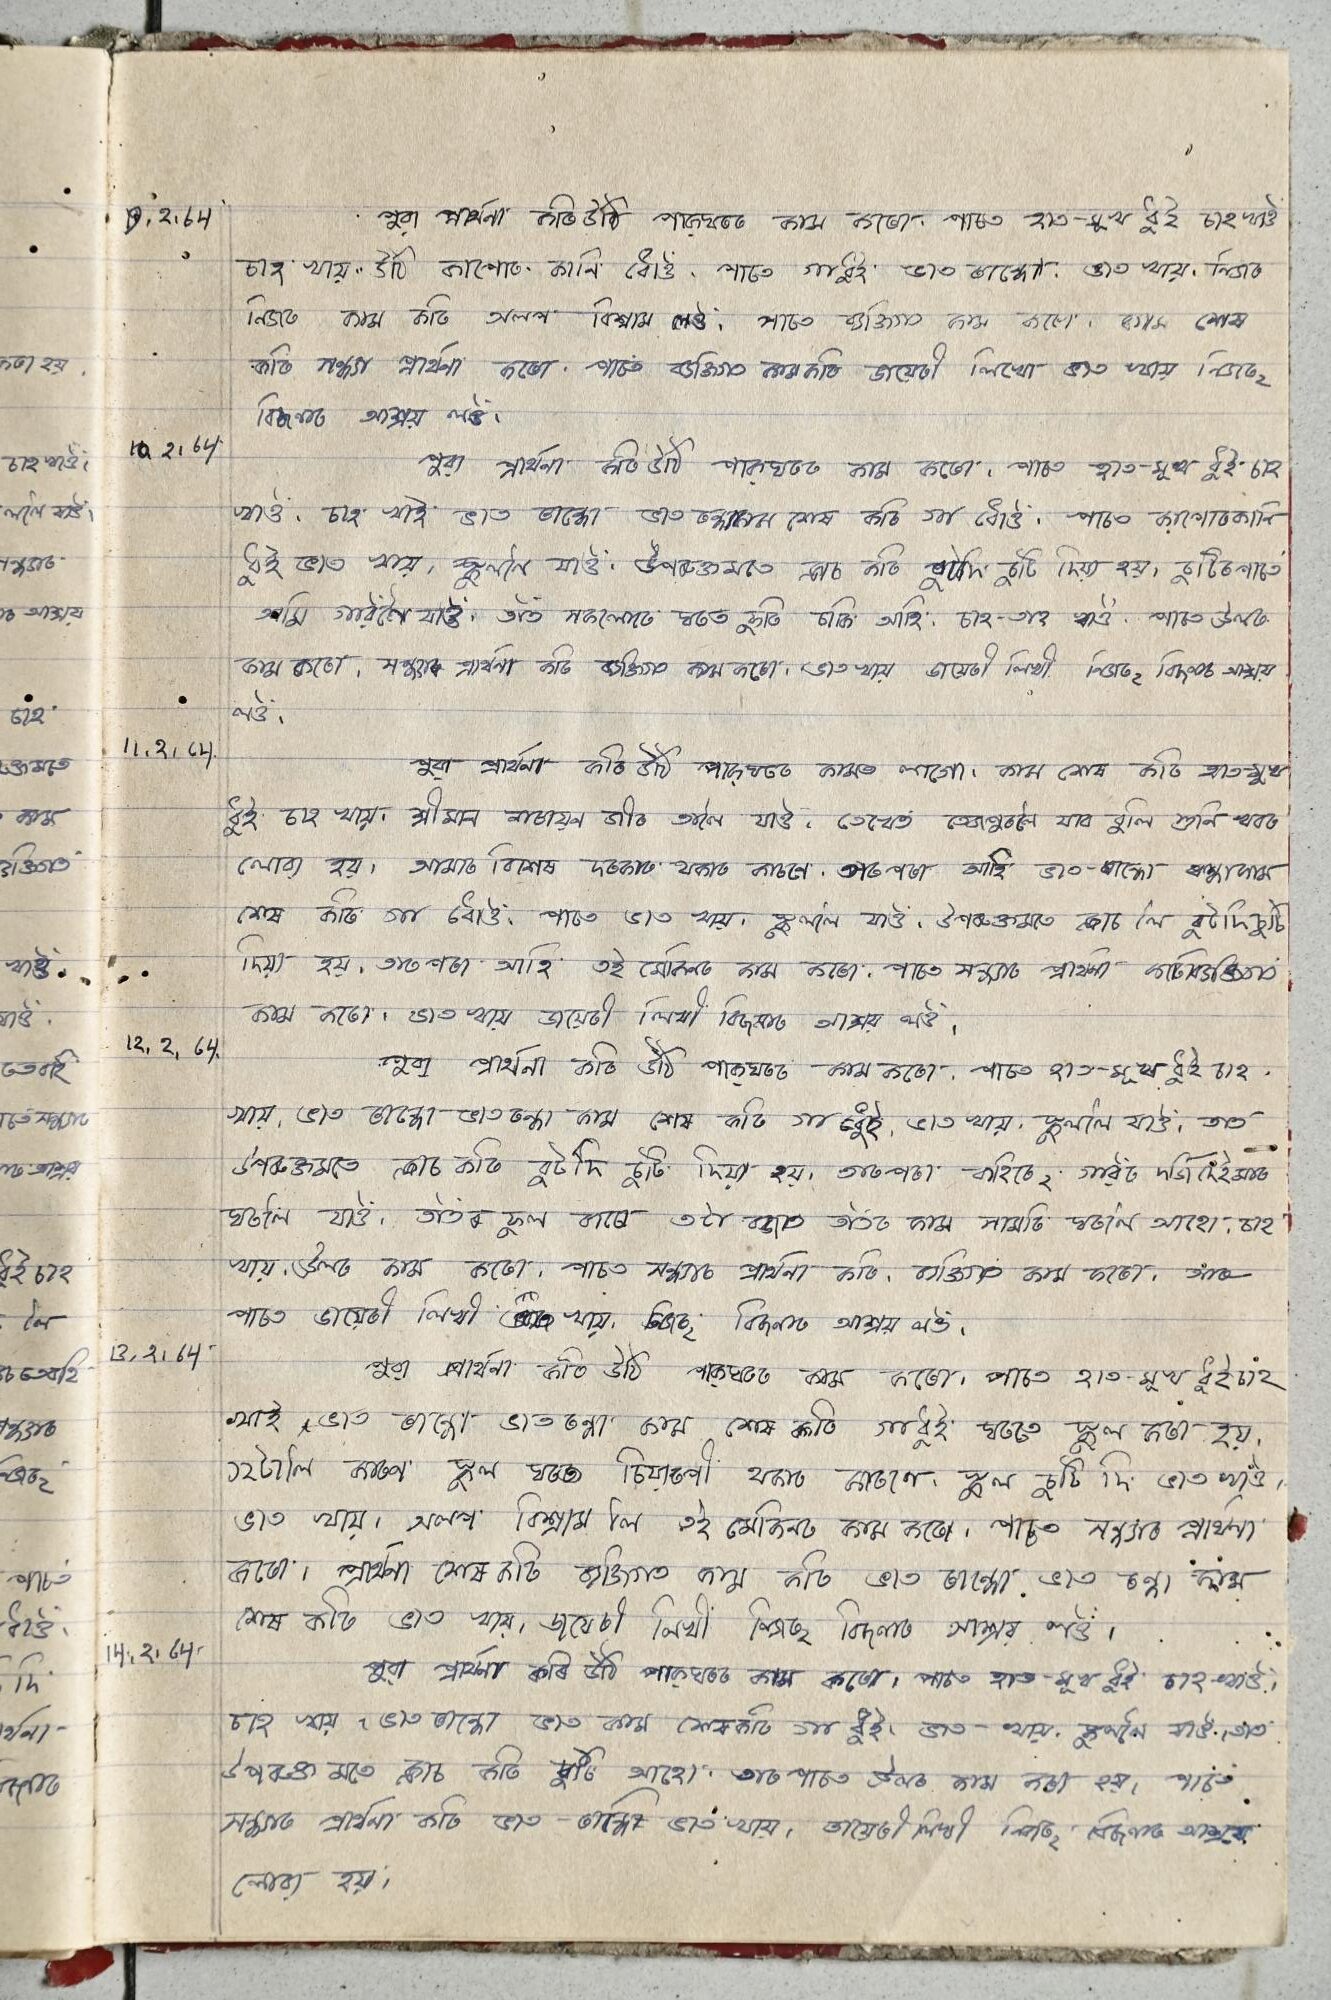 9.2.64 পুৱা প্ৰাৰ্থনা কৰি উঠি পাকঘৰত কাম কৰো. পাচত হাত-মুখ ধুই চাহ খাওঁ
চাহ খায়. উঠি কাপোৰ কানি ধোওঁ. পাচত গা ধুই ভাত ৰান্ধো. ভাত খায়. নিজৰ
নিজৰ কাম কৰি অলপ বিশ্ৰাম লওঁ. পাচত ব্যক্তিগত কাম কৰো. কাম শেষ
কৰি সন্ধ্যা প্ৰাৰ্থনা কৰো. পাচত ব্যক্তিগত কাম কৰি ডায়েৰী লিখো ভাত খায় নিজৰ
বিছনাত আশ্ৰয় লওঁ.
10.2.64 পুৱা প্ৰাৰ্থনা কৰি উঠি পাকঘৰত কাম কৰো. পাচত হাত-মুখ ধুই চাহ
খাওঁ. চাহ খাই ভাত ৰান্ধো ভাত ৰন্ধাকাম শেষ কৰি গা ধোওঁ. পাচত কাপোৰকানি
ধুই ভাত খায়. স্কুললৈ যাওঁ. উপৰুক্তমতে ক্লাচ কৰি ছুটি দিয়া হয়. ছুটিৰপাচত
আমি গাৱঁলৈ যাওঁ. তাঁত সকলোৰে ঘৰত ফুৰি চাকি আহি. চাহ-তাহ খাওঁ. পাচত উলৰ
কাম কৰো. সন্ধ্যাৰ প্ৰাৰ্থনা কৰি ব্যক্তিগত কাম কৰো. ভাত খায় ডায়েৰী লিখী নিজৰ বিছনাত আশ্ৰয়
লওঁ.
11.2.64. পুৱা প্ৰাৰ্থনা কৰি উঠি পাকঘৰত কামত লাগো. কাম শেষ কৰি হাত-মুখ
ধুই চাহ খায়. শ্ৰীমান নাৰায়ন জীৰ তালৈ যাওঁ. তেখেত তেজপুৰলৈ যাব বুলি শুনি খবৰ
লোৱা হয়. আমাৰ বিশেষ দৰকাৰ থকাৰ কাৰণে. তাৰপৰা আহি ভাত-ৰান্ধো ৰন্ধাকাম
শেষ কৰি গা ধোওঁ. পাচত ভাত খায়. স্কুললৈ যাওঁ. উপৰুক্তমতে ক্লাচ লৈ ছুটি
দিয়া হয়. তাৰপৰা আহি তই মেকিনৰ কাম কৰো. পাচত সন্ধ্যাৰ প্ৰাৰ্থনা কৰি ব্যক্তিগত
কাম কৰো. ভাত খায় ডায়েৰী লিখী বিছনাত আশ্ৰয় লওঁ.
12.2.64. পুৱা প্ৰাৰ্থনা কৰি উঠি পাকঘৰত কাম কৰো. পাচত হাত-মুখ ধুই চাহ.
খায়. ভাত ৰান্ধো ভাত ৰন্ধা কাম শেষ কৰি গা ধুই. ভাত খায়. স্কুললৈ যাওঁ. তাত
উপৰুক্তমতে ক্লাচ কৰি ছুটি দিয়া হয়. তাৰপৰা গাৱঁৰ
ঘৰলৈ যাওঁ. ফুল তাঁতৰ কাম সামৰি ঘৰলৈ আহো. চাহ
খায়. উলৰ কাম কৰো. পাচত সন্ধ্যাৰ প্ৰাৰ্থনা কৰি. ব্যক্তিগত কাম কৰো. তাৰ
পাচত ডায়েৰী লিখী ভাত খায়. নিজৰ বিছনাত আশ্ৰয় লওঁ.
13.2.64 পুৱা প্ৰাৰ্থনা কৰি উঠি পাকঘৰত কাম কৰো. পাচত হাত-মুখ ধুই চাহ
খাই ভাত ৰান্ধো ভাত ৰন্ধা কাম শেষ কৰি গা ধুই ঘৰতে স্কুল কৰা হয়.
স্কুল ঘৰত থকাৰ কাৰণে. স্কুল ছুটি দি ভাত খাওঁ.
ভাত খায়. অলপ বিশ্ৰাম লৈ তই মেকিনৰ কাম কৰো. পাচত সন্ধ্যাৰ প্ৰাৰ্থনা
কৰো. প্ৰাৰ্থনা শেষ কৰি ব্যক্তিগত কাম কৰি ভাত ৰান্ধো. ভাত ৰন্ধা কাম
শেষ কৰি ভাত খায়. ডায়েৰী লিখী নিজৰ বিছনাত আশ্ৰয় লওঁ.
14.2.64 পুৱা প্ৰাৰ্থনা কৰি উঠি পাকঘৰত কাম কৰো. পাচত হাত-মুখ ধুই চাহ-খাওঁ.
চাহ খায়. ভাত ৰান্ধো ভাত কাম শেষ কৰি গা ধুই. ভাত-খায়. স্কুললৈ যাওঁ. তাত
উপৰুক্ত মতে ক্লাচ কৰি ঘুৰি আহো. তাৰ পাচত উলৰ কাম কৰা হয়. পাচত
সন্ধ্যাৰ প্ৰাৰ্থনা কৰি ভাত-ৰান্ধি ভাত খায়. ডায়েৰী লিখী নিজৰ বিছনাত আশ্ৰয়
লোৱা হয়.